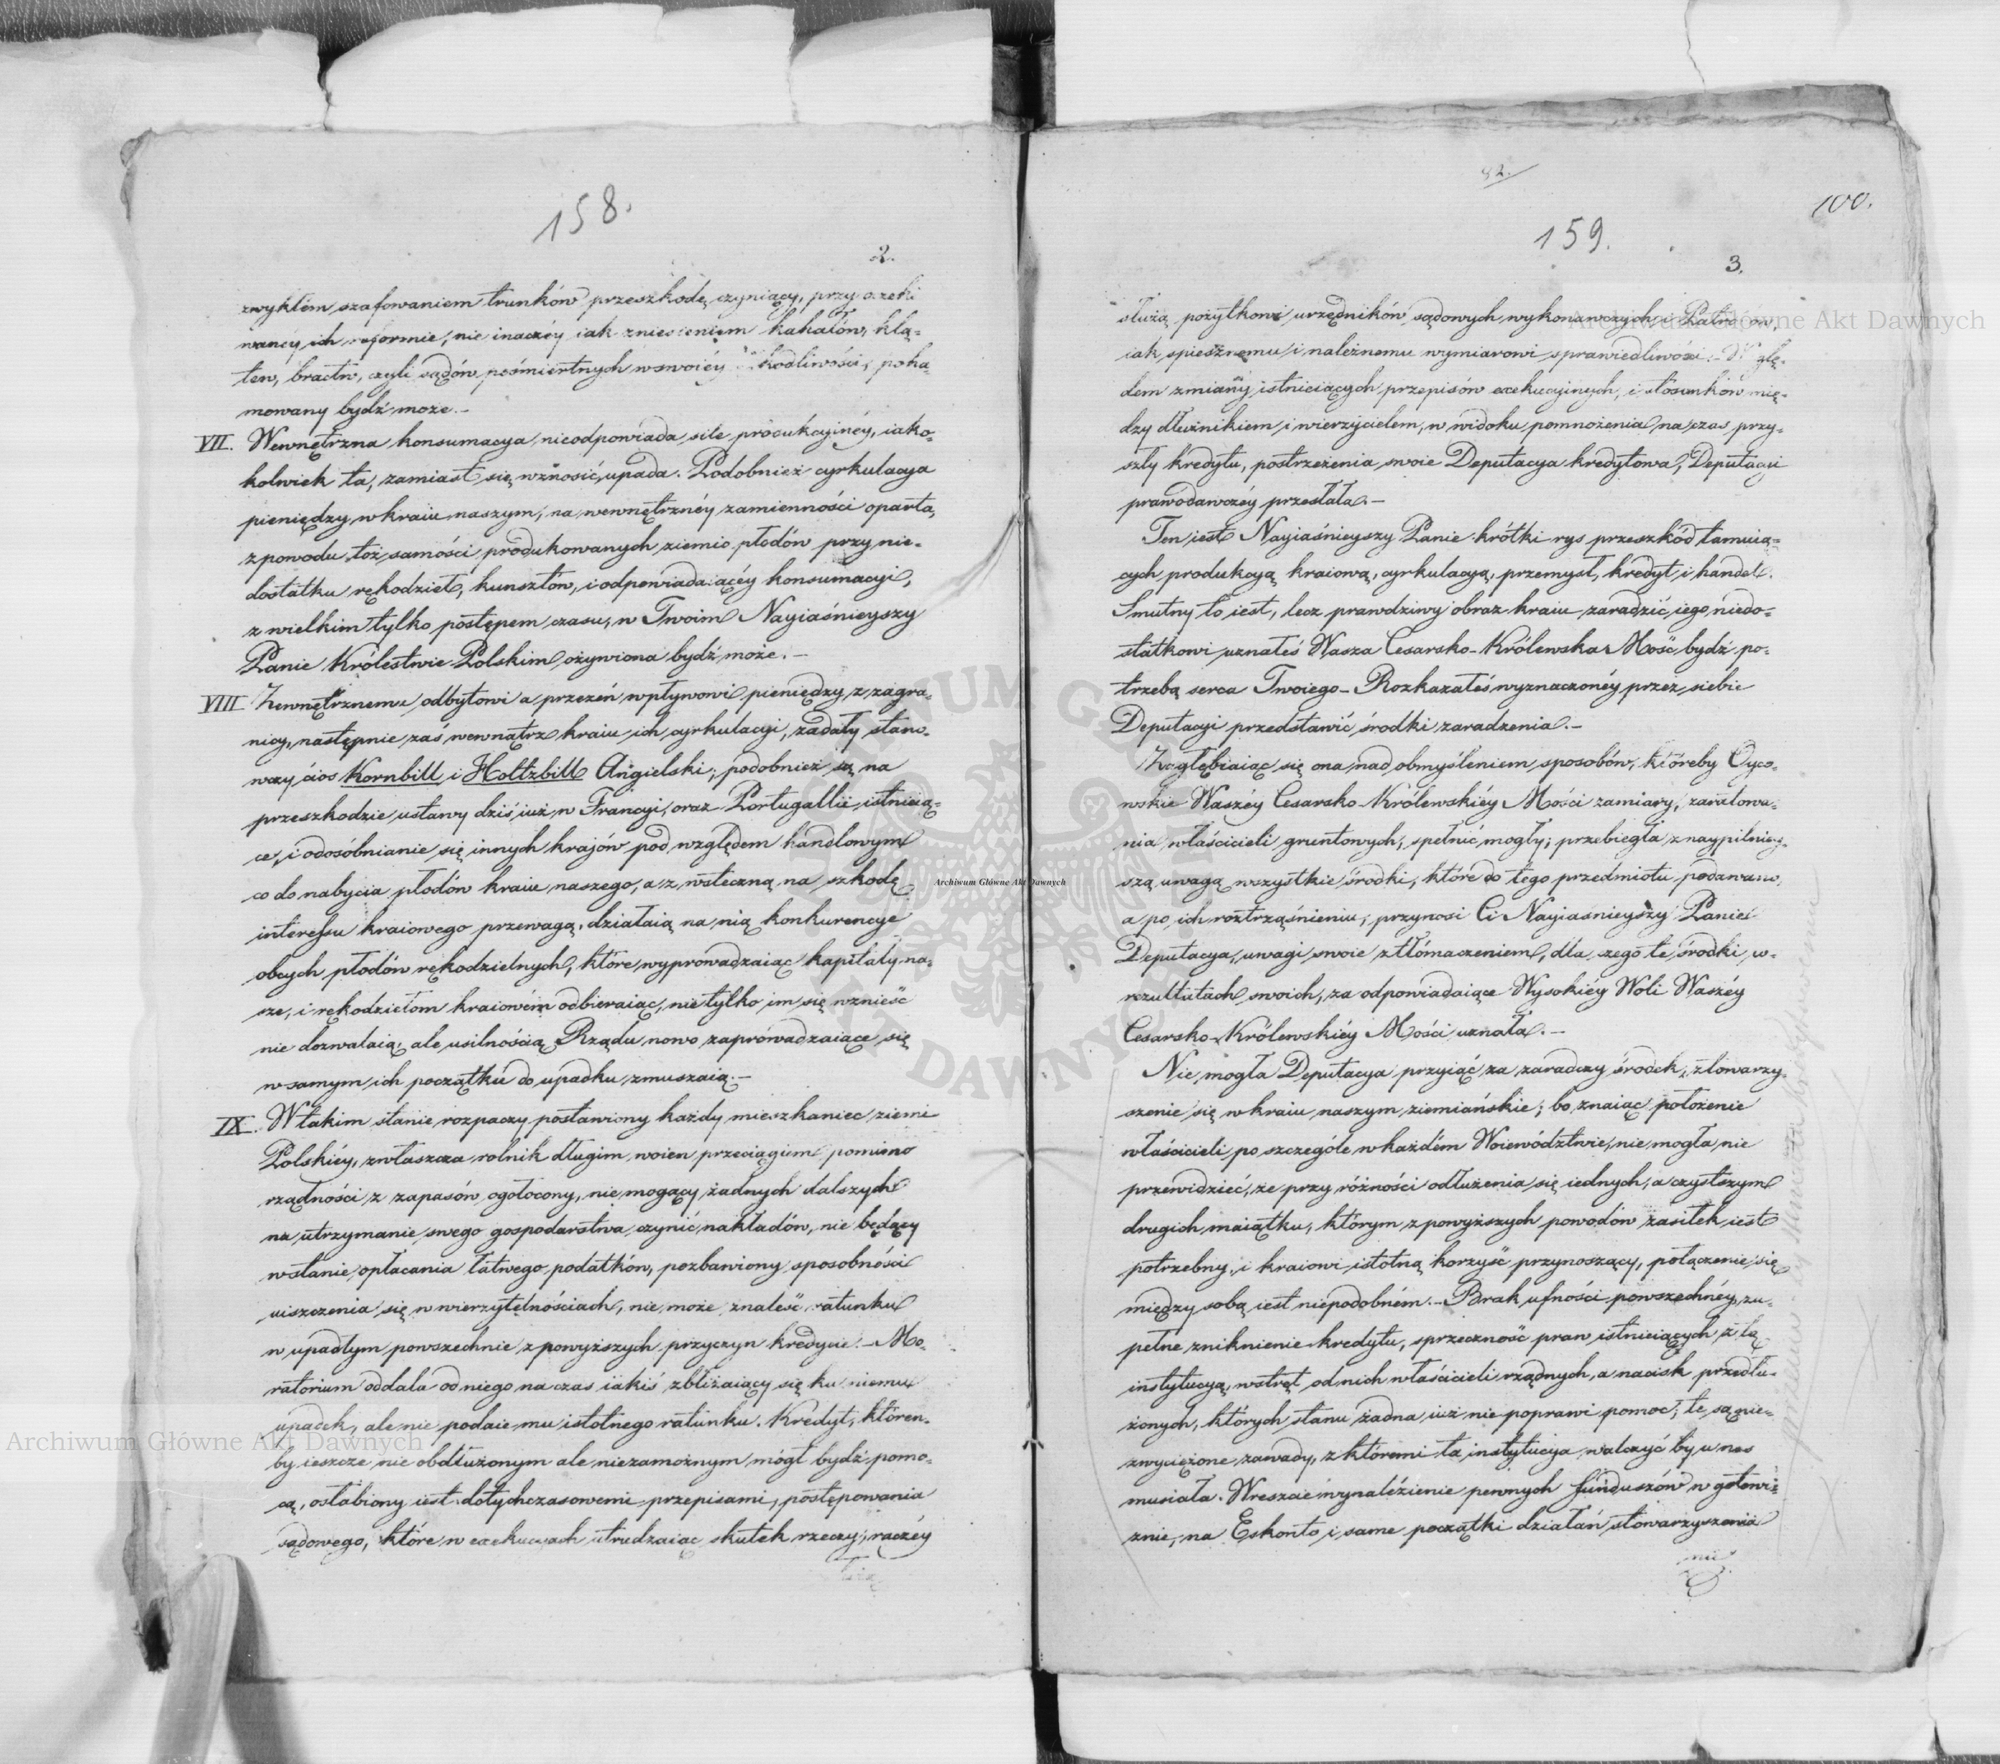 158.
2.
zwykłém szafowaniem trunków przeszkodę czyniący, przy oczeki
waney ich reformie, nie inaczéy iak zniesieniem Kahałów, klą-
tew, bractw, czyli sądów pośmiertnych w swoiéy szkodliwości, poha-
mowany bydź może.–
VII. Wewnętrzna konsumacya, nieodpowiada sile produkcyinéy, iako-
kolwiek ta, zamiast się wznosić, upada. Podobnież cyrkulacya
pieniędzy w kraiu naszym, na wewnętrznéy zamienności oparta,
z powodu toż samości produkowanych ziemio płodów przy nie-
dostatku rękodzieł, kunsztów, i odpowiadaiącéy konsumacyi,
z wielkim tylko postępem czasu, w Twoim Nayiaśnieyszy
Panie Królestwie Polskim ożywiona bydź może.–
VIII Zewnętrznemu odbytowi a przezeń wpływowi pieniędzy z zagra-
nicy, następnie zaś wewnątrz kraiu ich cyrkulacyi, zadały stano-
wczy cios Kornbill i Holtzbill Angielski; podobnież są na
przeszkodzie ustawy dziś iuż w Francyi, oraz Portugallii istnieią-
ce, i odosóbnianie się innych krajów pod względem handlowym
co do nabycia płodów kraiu naszego, a z wsteczną na szkodę
interessu kraiowego przewagą, działaią na nią konkurencye
obcych płodów rękodzielnych, które wyprowadzaiąc kapitały na-
sze, i rękodziełom kraiowém odbieraiąc, nie tylko im się wznieść
nie dozwalaią, ale usilnością Rządu nowo zaprowadzaiące się
w samym ich początku do upadku zmuszaią.–
IX. W takim stanie rozpaczy postawiony każdy mieszkaniec ziemi
Polskiéy, zwłaszcza rolnik długim woien przeciągiem pomimo
rządności z zapasów ogołocony, nie mogący żadnych dalszych
na utrzymanie swego gospodarstwa czynić nakładów, nie będący
w stanie opłacania łatwego podatków, pozbawiony sposobności
uiszczenia się w wierzytelnościach, nie może znaleść ratunku
w upadłym powszechnie z powyższych przyczyn kredycie.– Mo-
ratorium oddala od niego na czas iakiś zbliżaiący się ku niemu
upadek, ale nie podaie mu istotnego ratunku. Kredyt, któren-
by ieszcze nie obdłużonym ale niezamożnym mógł bydź pomo-
cą, osłabiony iest dotychczasowemi przepisami, postępowania
sądowego, które w exekucyach utrudzaiąc skutek rzeczy, raczéy
służą
100.
159.
3.
służą pożytkowi urzędników sądowych wykonawczych i Patronów,
iak spiesznemu i należnemu wymiarowi sprawiedliwości.– Wzglę-
dem zmiany istnieiących przepisów exekucyinych, i stosunków mię-
dzy dłużnikiem i wierzycielem, w widoku pomnożenia na czas przy-
szły kredytu, postrzeżenia swoie Deputacya kredytowa, Deputacyi
prawodawczéy przesłała.–
Ten iest Nayiaśnieyszy Panie krótki rys przeszkód tamuią-
cych produkcyą kraiową, cyrkulacyą, przemysł, kredyt i handel.
Smutny to iest, lecz prawdziwy obraz kraiu zaradzić iego niedo-
statkowi uznałeś Wasza Cesarsko-Królewska Mość bydź po-
trzebą serca Twoiego– Rozkazałeś wyznaczonéy przez siebie
Deputacyi przedstawić środki zaradzenia.–
Zagłębiaiąc się ona nad obmyśleniem sposobów, któreby Oyco-
wskie Waszéy Cesarsko-Królewskiéy Mości zamiary, zaratowa-
nia właścicieli gruntowych, spełnić mogły; przebiegła z naypilniey-
szą uwagą wszystkie środki, które do tego przedmiotu podawano,
a po ich roztrząśnieniu, przynosi Ci Nayiaśnieyszy Panie
Deputacya, uwagi swoie z tłómaczeniem, dla czego te środki w
rezultatach swoich, za odpowiadaiące Wysokiey Woli Waszéy
Cesarsko-Królewskiéy Mości uznała.–
Nie mogła Deputacya przyiąć za zaradczy środek, stowarzy-
szenie się w kraiu naszym ziemiańskie; bo znaiąc położenie
właścicieli po szczególe w każdém Woiewództwie, nie mogła nie
przewidzieć, że przy różności odłużenia się iednych, a czystszym
drugich maiątku, którym z powyższych powodów zasiłek iest
potrzebny, i kraiowi istotną korzyść przynoszący, połączenie się
między sobą iest niepodobném.– Brak ufności powszechnéy, zu-
pełne zniknienie kredytu, sprzeczność praw istnieiących z tą
instytucyą, wstręt od nich właścicieli rządnych, a nacisk przedłu-
żonych, których stanu żadna iuż nie poprawi pomoc, te są nie-
zwyciężone zawady, z któremi ta instytucya walczyć by u nas
musiała. Wreszcie wynalézienie pewnych funduszów w gotowi-
znie, na Eskonto i same początki działań stowarzyszenia
nie